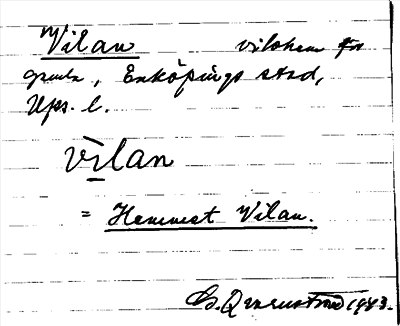 Vilan vilohem för
gamla, Enköpings stad,
Ups. l.
vīlan
= Hemmet Vilan.
1943.